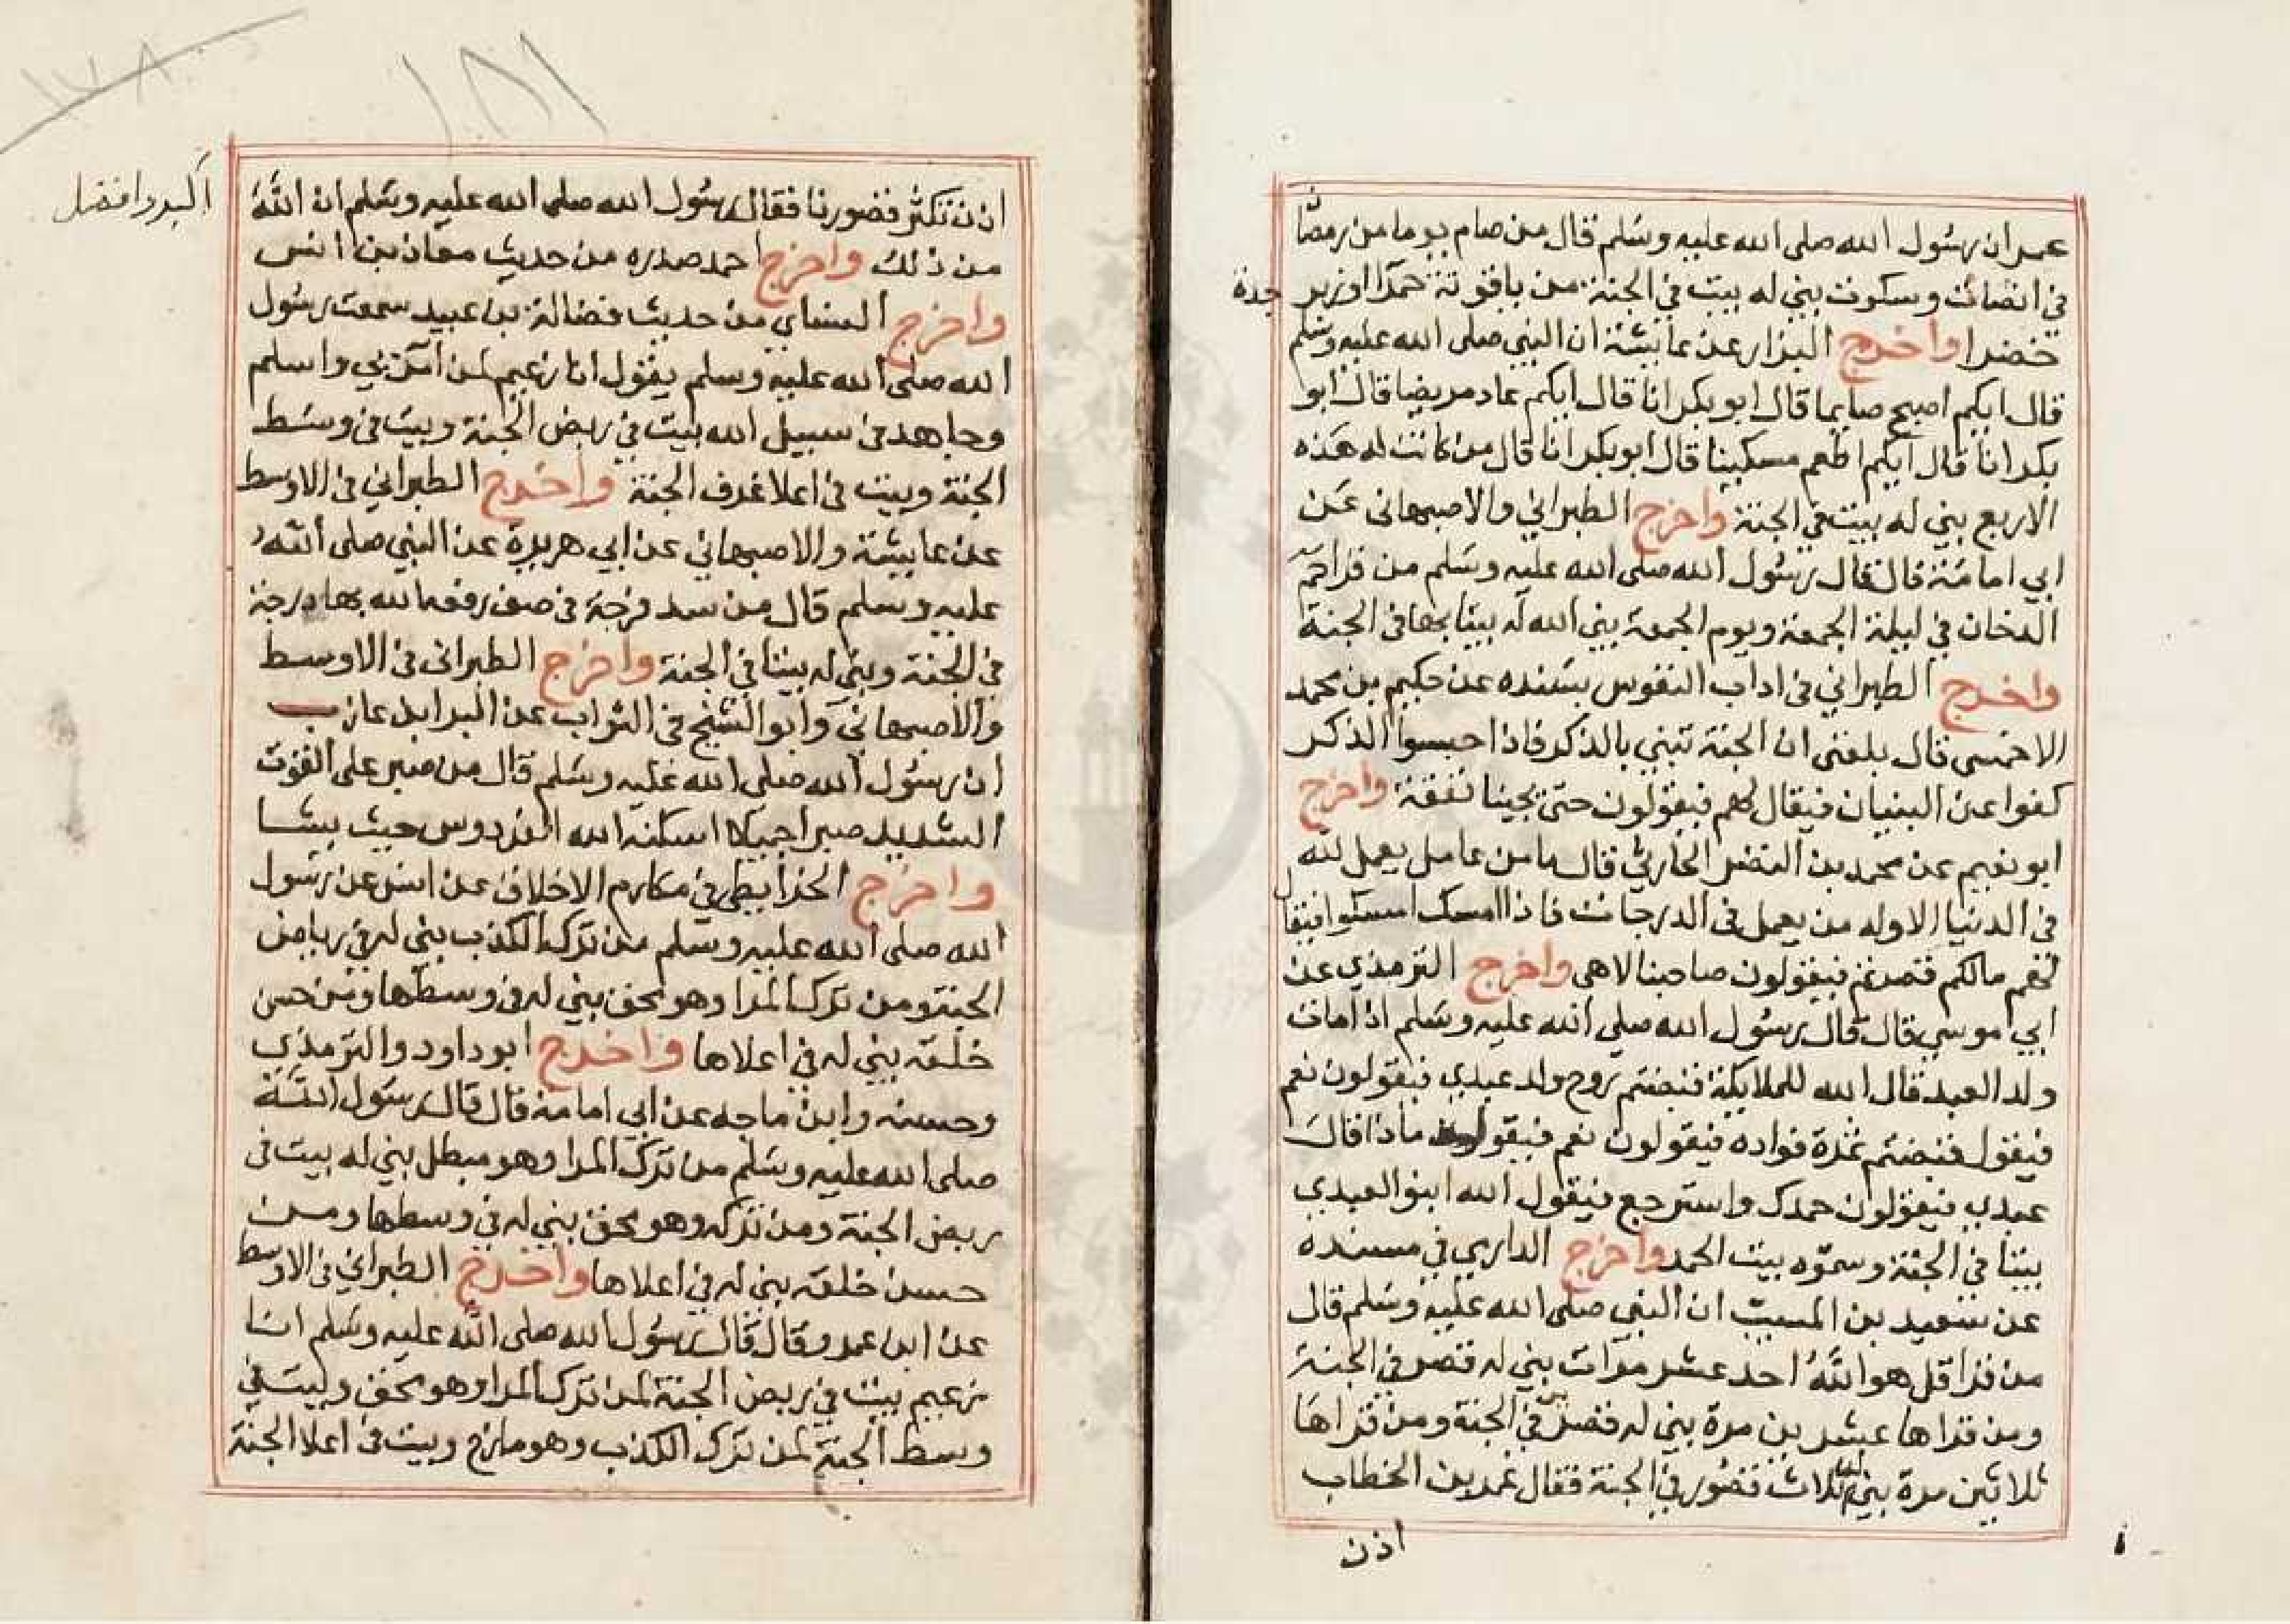 عمر ان رسول الله صلى الله عليه وسلم قال من صام يوما من رمضان
في انصات وسكوت بني له بيت في الجنة من ياقوتة حمرا او زبرجدة
خضرا واخرج البزار عن عايشة ان النبي صلى الله عليه وسلم
قال ايكم اصبح صايما قال ابو بكر انا قال ايكم عاد مريضا قال ابو
بكر انا قال ايكم اطعم مسكينا قال ابو بكر انا قال من كانت له هذه
الاربع بني له بيت في الجنة واخرج الطبراني والاصبهاني عن
ابي امامة قال قال رسول الله صلى الله عليه وسلم من قرا حم
الدخان في ليلة الجمعة ويوم الجمعة بني الله له بيتا بها في الجنة
واخرج الطبراني في اداب النفوس بسنده عن حكيم بن محمد
الاحمسي قال بلغني ان الجنة تبني بالذكر فاذا احبسوا الذكر
كفوا عن البنيان فيقال لهم فيقولون حتى يجينا نفقة واخرج
ابو نعيم عن محمد بن النضر الحارثي قال ما من عامل يعمل لله
في الدنيا الا وله من يعمل في الدرجات فاذا امسك امسكوا فيقال
لهم مالكم فيقولون صاحبنا لاهى واخرج الترمذي عن
ابي موسي قال قال رسول الله صلي الله عليه وسلم اذا مات
ولد العبد قال الله للملايكة قبضتم روح ولد عبدي فيقولون نعم
فيقول قبضتم ثمرة فواده فيقولون نعم فيقول ماذا قال
عبدي فيقولون حمدك واسترجع فيقول الله ابنوا لعبدي
بيتا في الجنة وسموه بيت الحمد واخرج الدارمي في مسنده
عن سعيد بن المسيب ان النبي صلى الله عليه وسلم قال
من قرا قل هو الله احد عشر مرات بني له قصر في الجنة
ومن قراها عشرين مرة بني له قصرين في الجنة ومن قراها
ثلاثين مرة بني له ثلاث قصور في الجنة فقال عمر بن الخطاب
اذن
١٨١
١٧٨
اذن تكثر قصورنا فقال رسول الله صلى الله عليه وسلم ان الله اكبر وافضل
من ذلك واخرج احمد صدره من حديث معاذ بن انس
واخرج النساي من حديث فضالة بن عبيد سمعت رسول
الله صلى الله عليه وسلم يقول انا زعيم لمن آمن بي واسلم
وجاهد في سبيل الله بيت في ربض الجنة وبيت في وسط
الجنة وبيت في اعلا غرف الجنة واخرج الطبراني في الاوسط
عن عايشة والاصبهاني عن ابي هريرة عن النبي صلى الله
عليه وسلم قال من سد فرجة في صف رفعه الله بها درجة
في الجنة وبني له بيتا في الجنة واخرج الطبراني في الاوسط
والاصبهاني وابو الشيخ في الثواب عن البرا بن عازب
ان رسول الله صلى الله عليه وسلم قال من صبر على القوت
الشديد صبرا جميلا اسكنه الله الفردوس حيث يشا
واخرج الخرايطي في مكارم الاخلاق عن انس عن رسول
الله صلى الله عليه وسلم من ترك الكذب بني له في رباض
الجنة ومن ترك المرا وهو محق بني له في وسطها ومن حسن
خلقه بني له في اعلاها واخرج ابو داود والترمذي
وحسنه وابن ماجه عن ابي امامة قال قال رسول الله
صلى الله عليه وسلم من ترك المرا وهو مبطل بني له بيت في
ربض الجنة ومن تركه وهو محق بني له في وسطها ومن
حسن خلقه بني له في اعلاها واخرج الطبراني في الاوسط
عن ابن عمر وقال قال رسول الله صلى الله عليه وسلم انا
زعيم بيت في ربض الجنة لمن ترك المرا وهو محق وبيت في
وسط الجنة لمن ترك الكذب وهو مازح وبيت في اعلا الجنة